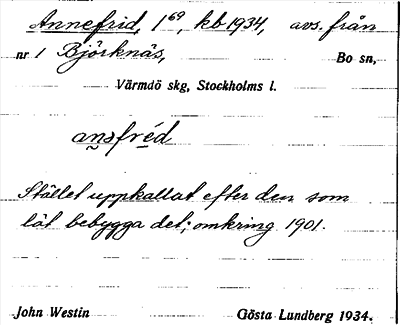 Annefrid, 1⁶⁹, kb 1934, avs. från
nr 1 Björknäs, Bo sn,
Värmdö skg, Stockholms l.
ansfréd
Stället uppkallat efter den som
lät bebygga det; omkring 1901.
John Westin Gösta Lundberg 1934.